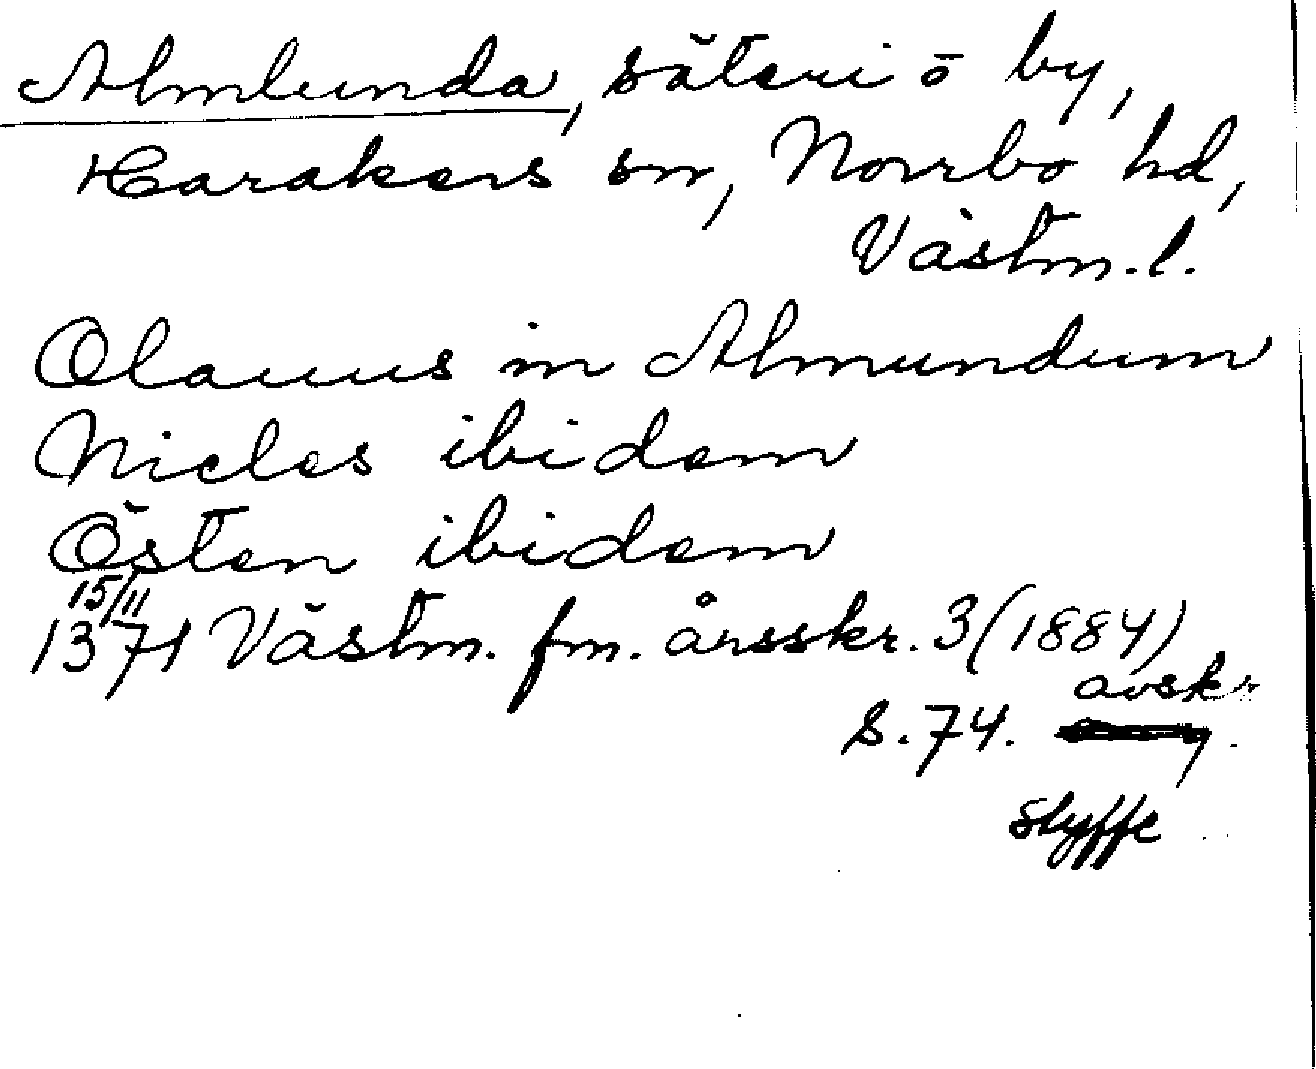 Almlunda, säteri o by,
Harakers sn, Norrbo hd,
Västm. l.
Olauus in Almundum
Niclas ibidem
Östen ibidem
15/11
1371 Västm. fm. årsskr. 3 (1884)
avskr
s. 74.
Styffe